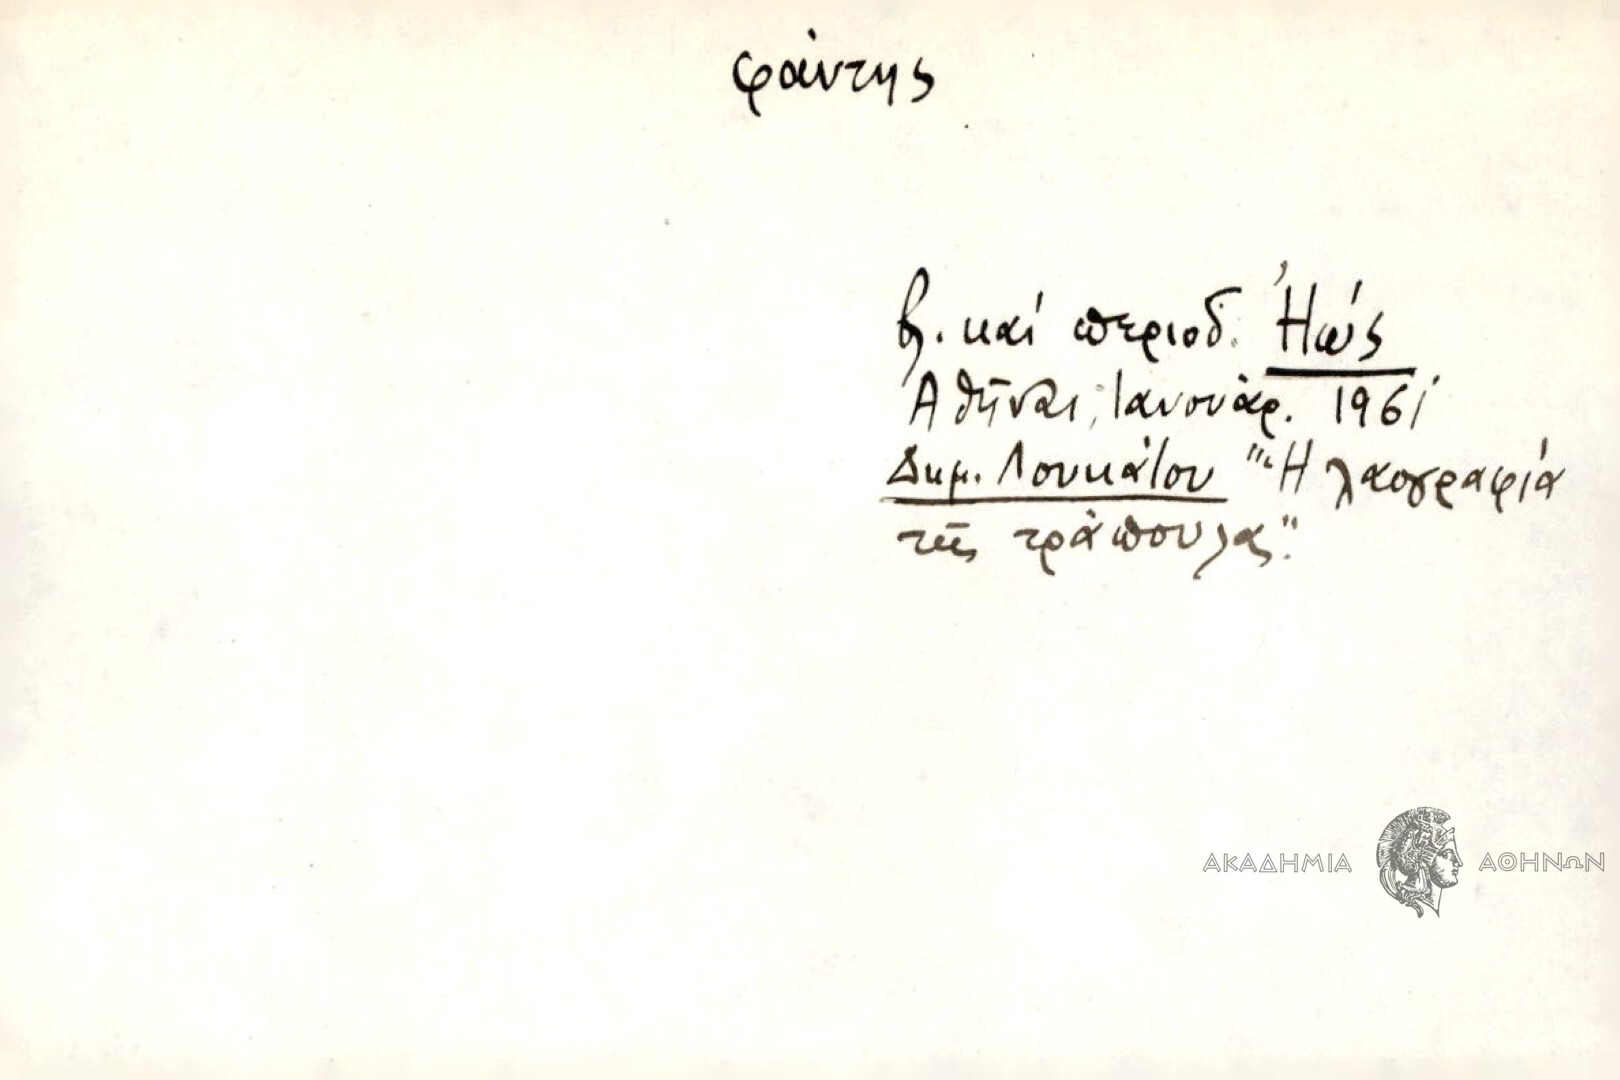 φάντης
βλ. καί περιοδ. Ἠώς
Ἀθῆναι, Ἰανουάρ. 1961
Δημ. Λουκάτου "Ἡ λαογραφία
τῆς τράπουλας".
ΑΚΑΔΗΜΙΑ ΑΘΗΝΩΝ